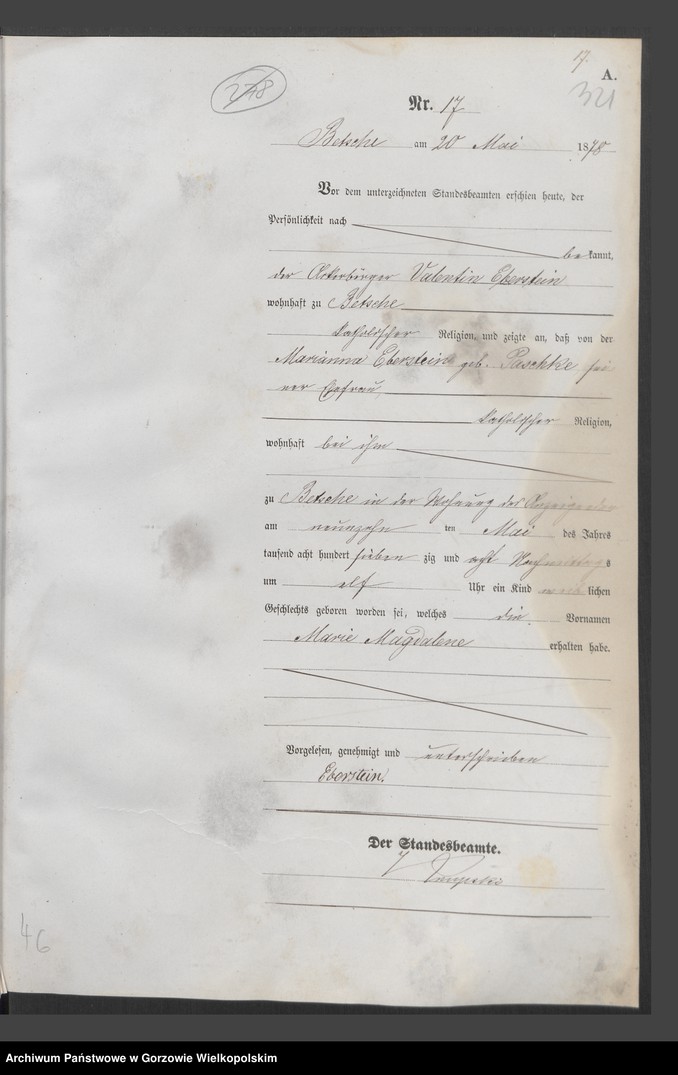 17.
A.
321
278
Nr. 17
Betsche am 20 Mai 1878
Vor dem unterzeichneten Standesbeamten erschien heute, der
Persönlichkeit nach
bekannt,
der Ackerbürger Valentin Eberstein
wohnhaft zu Betsche
katholischer Religion, und zeigte an, daß von der
Marianna Eberstein geb. Paschke, sei
ner Ehefrau,
katholischer Religion,
wohnhaft bei ihm
zu Betsche in der Wohnung des Anzeigenden
am neunzehn ten Mai des Jahres
tausend acht hundert sieben zig und acht Nachmittags
um elf Uhr ein Kind weiblichen
Geschlechts geboren worden sei, welches die Vornamen
Marie Magdalene erhalten habe.
Vorgelesen, genehmigt und unterschrieben
Eberstein.
Der Standesbeamte.
46
Archiwum Państwowe w Gorzowie Wielkopolskim